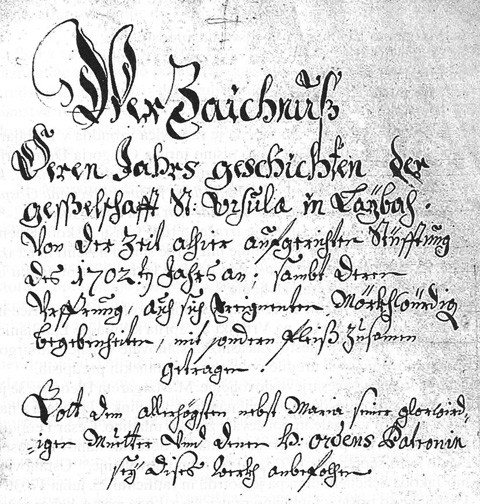 Ver Zaichnuß
Deren Jahrs geschichten der
geseßelschafft St. Ursula in Laÿbach.
Von der Zeit alhier aufgerichten Stüfftung
des 1702ten Jahrs an; sambt deren
Ursprung, auch sich Ereigneten Märkhwürdig
begebenheiten, mit sondern fleiß zusamen
getragen.
Gott dem allerhögsten nebst Maria seiner glorwird-
igen Mutter Und denen H: ordens Patronin
seÿ dises werkh anbefohlen